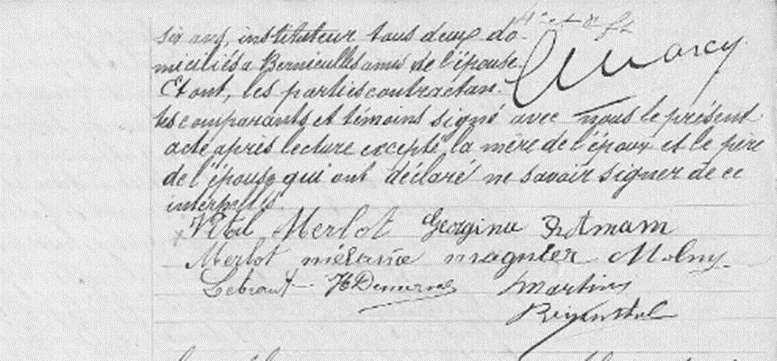 six ans, instituteur tous deux do-
miciliés à Bernieulles amis de l'épouse.
Et ont, les parties contractan-
tes comparants et témoins signé avec nous le présent
acte après lecture excepté la mère de l'époux et le père
de l'épouse qui ont déclaré ne savoir signer de ce
interpellés.
Vital Merlot Georgina
Merlot mélanie magnier
H Demerne Martin